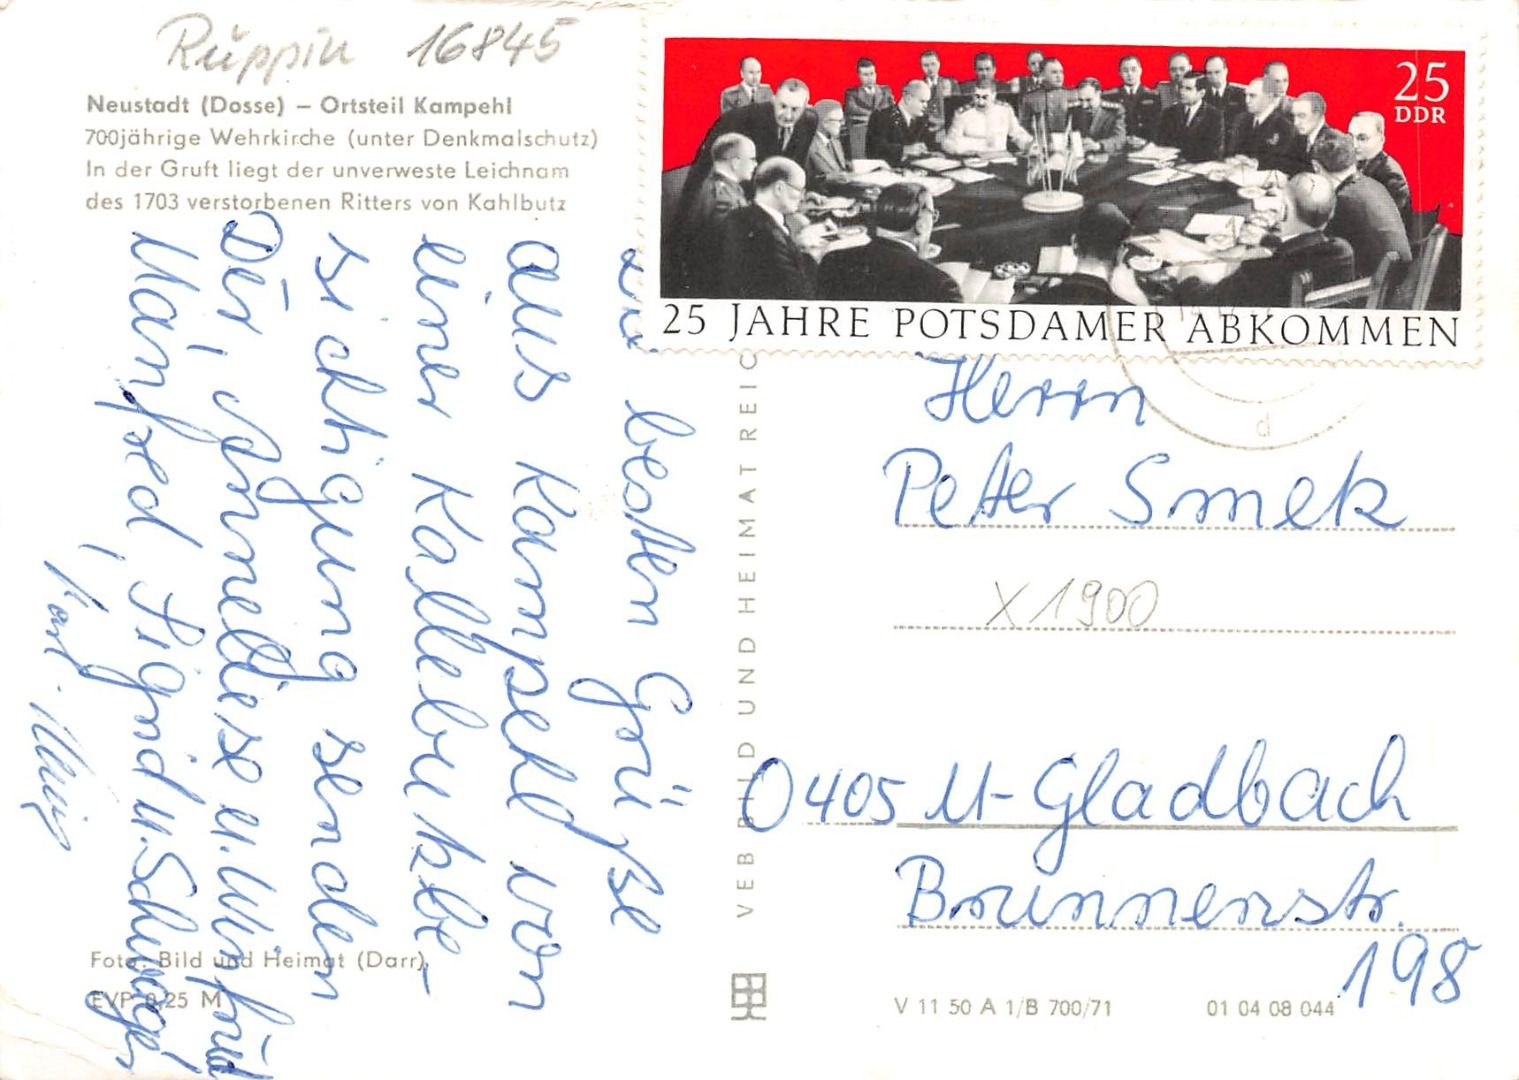 Rüppin 16845
Neustadt (Dosse) – Ortsteil Kampehl
700jährige Wehrkirche (unter Denkmalschutz)
In der Gruft liegt der unverweste Leichnam
des 1703 verstorbenen Ritters von Kahlbutz
25
DDR
25 JAHRE POTSDAMER ABKOMMEN
d
besten Grüße
aus Kampehl von
einer Kallebutzbe-
sichtigung senden
Dir, Anneliese u. Winfried
Manfred, Sigrid u. Schwager
Karl-
Herrn
Peter Smek
X 1900
0405 M-Gladbach
Brunnenstr.
198
VEB BILD UND HEIMAT REIC
Foto: Bild und Heimat (Darr)
EVP 0,25 M
V 11 50 A 1/B 700/71
01 04 08 044